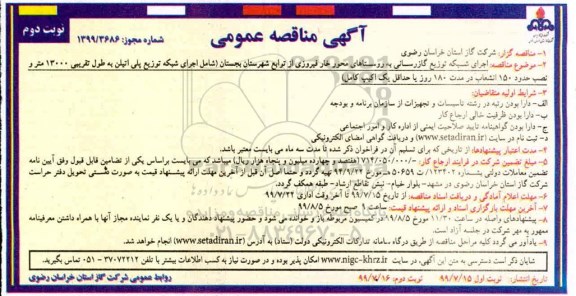 نوبت دوم
آگهی مناقصه عمومی
شماره مجوز: ۱۳۹۹/۳۶۸۶
۱- مناقصه گزار: شرکت گاز استان خراسان رضوی
۲- موضوع مناقصه: اجرای شبکه توزیع گازرسانی به روستاهای محور غار فیروزی از توابع شهرستان بجستان (شامل اجرای شبکه توزیع پلی اتیلن به طول تقریبی ۱۳۰۰۰ متر و
نصب حدود ۱۵۰ انشعاب در مدت ۱۸۰ روز با حداقل یک اکیپ کامل)
۳- شرایط اولیه متقاضیان:
الف- دارا بودن رتبه در رشته تاسیسات و تجهیزات از سازمان برنامه و بودجه
ب- دارا بودن ظرفیت خالی ارجاع کار
ج- دارا بودن گواهینامه تایید صلاحیت ایمنی از اداره کار و امور اجتماعی
د- ثبت نام در سایت (www.setadiran.ir) و دریافت گواهی امضای الکترونیکی
۴- مدت اعتبار پیشنهادها: از تاریخی که برای تسلیم آن در فراخوان ذکر شده تا مدت سه ماه می بایست معتبر باشد.
۵- مبلغ تضمین شرکت در فرایند ارجاع کار: -/۷۱۴/۰۵۰/۰۰۰ (هفتصد و چهارده میلیون و پنجاه هزار ریال) میباشد که می بایست براساس یکی از تضامین قابل قبول وفق آیین نامه
تضمین معاملات دولتی بشماره ۱۲۳۴۰۲/ت ۵۰۶۵۹ ه مورخ ۹۴/۹/۲۲ تهیه گردد و حتما اصل آن قبل از آخرین مهلت ارائه پیشنهاد قیمت به صورت دستی تحویل دفتر حراست
شرکت گاز استان خراسان رضوی در مشهد- بلوار خیام- نبش تقاطع ارشاد- طبقه همکف گردد.
۶- مهلت اعلام آمادگی و دریافت اسناد مناقصه: از تاریخ ۹۹/۷/۱۵ تا آخر وقت اداری ۹۹/۷/۲۲
۷- آخرین مهلت بارگزاری اسناد و ارائه پیشنهاد قیمت: ساعت ۹ صبح مورخ ۹۹/۸/۵
۸- پیشنهادهای واصله در ساعت ۱۱/۳۰ مورخ ۹۹/۸/۵ در کمیسیون مربوطه باز و خوانده می شود و حضور پیشنهاد دهندگان و یا یک نفر نماینده مجاز آنها با همراه داشتن معرفینامه
ممهور به مهر شرکت در جلسه آزاد است.
۹- یادآور می گردد کلیه مراحل مناقصه از طریق درگاه سامانه تدارکات الکترونیکی دولت (ستاد) به آدرس (www.setadiran.ir) انجام خواهد شد.
شایان ذکر است دسترسی به متن این آگهی، در سایت www.nigc-khrz.ir امکان پذیر بوده و در صورت نیاز به کسب اطلاعات بیشتر با تلفن ۳۷۰۷۲۲۱۲ - ۰۵۱ تماس بگیرید.
تاریخ انتشار: نوبت اول ۹۹/۷/۱۵ نوبت دوم: ۹۹/۷/۱۶
روابط عمومی شرکت گاز استان خراسان رضوی